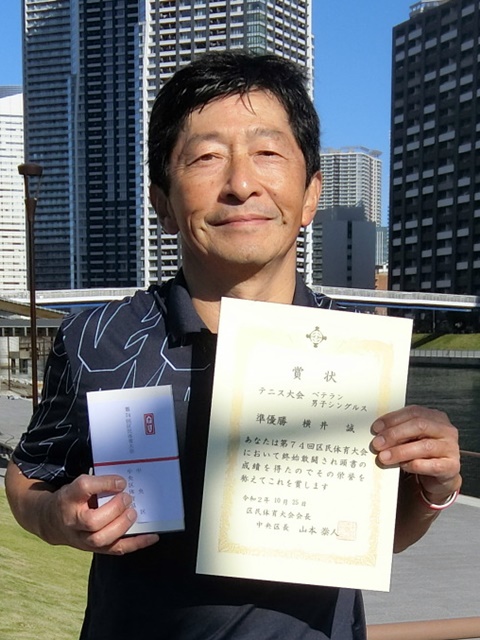 賞状
テニス大会 ベテラン
男子シングルス
準優勝 横井 誠
あなたは第74回区民体育大会
において終始敢闘され頭書の
成績を得たのでその栄誉を
称えてこれを賞します
令和2年10月25日
区民体育大会会長
中央区長 山本 崇人